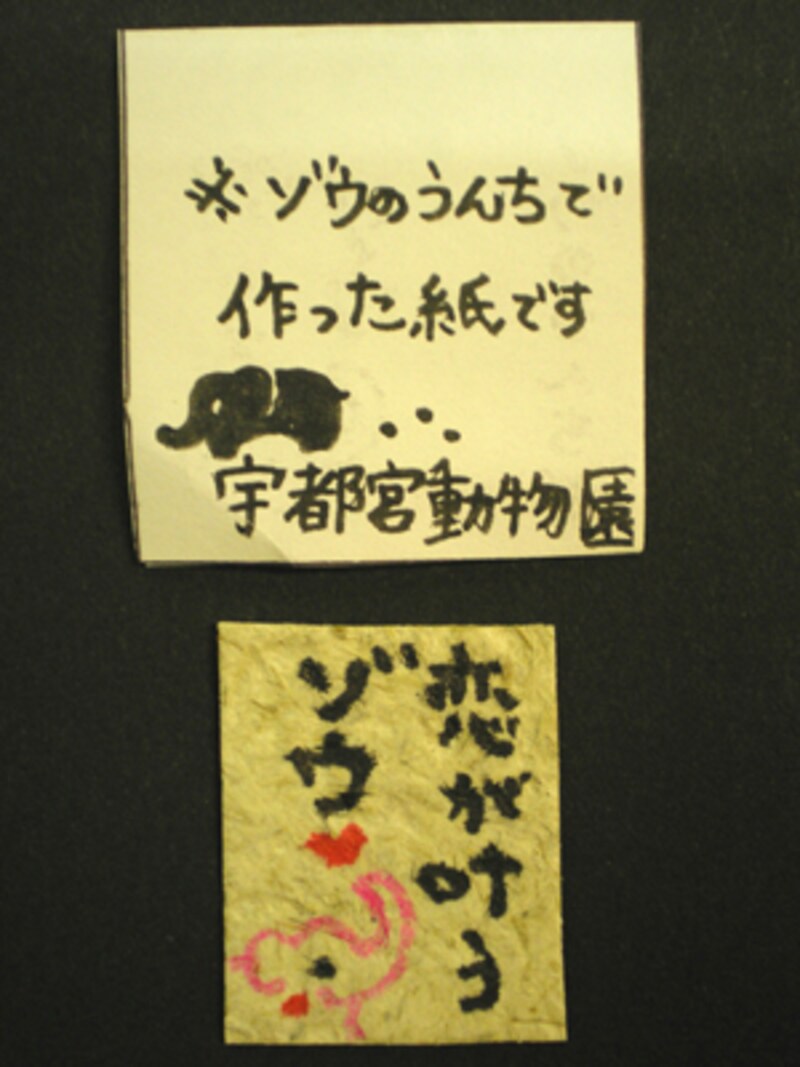 ※ゾウのうんちで
作った紙です
宇都宮動物園
恋が叶う
ゾウ